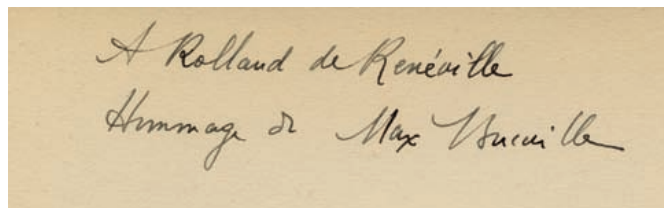 A Rolland de Renéville
Hommage de Max Bucaille